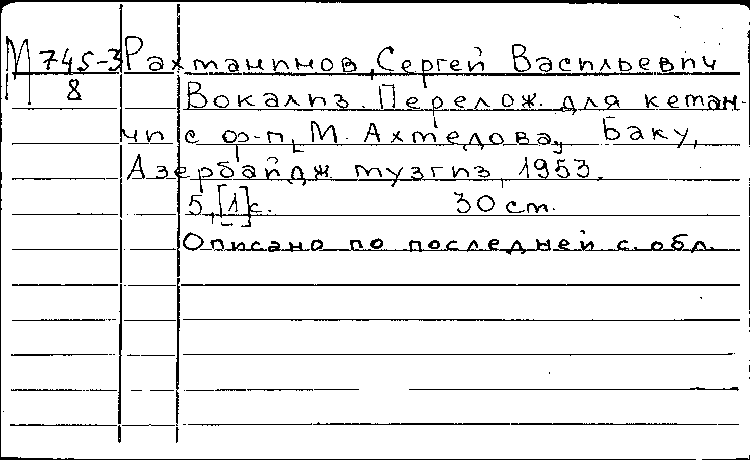 М 745-3 Рахманинов, Сергей Васильевич
8 Вокализ. Перелож. для кеман-
чи с ф-п. М. Ахмедова, Баку,
Азербайдж музгиз, 1953.
5, [1] с. 30 см.
Описано по последней с. обл.